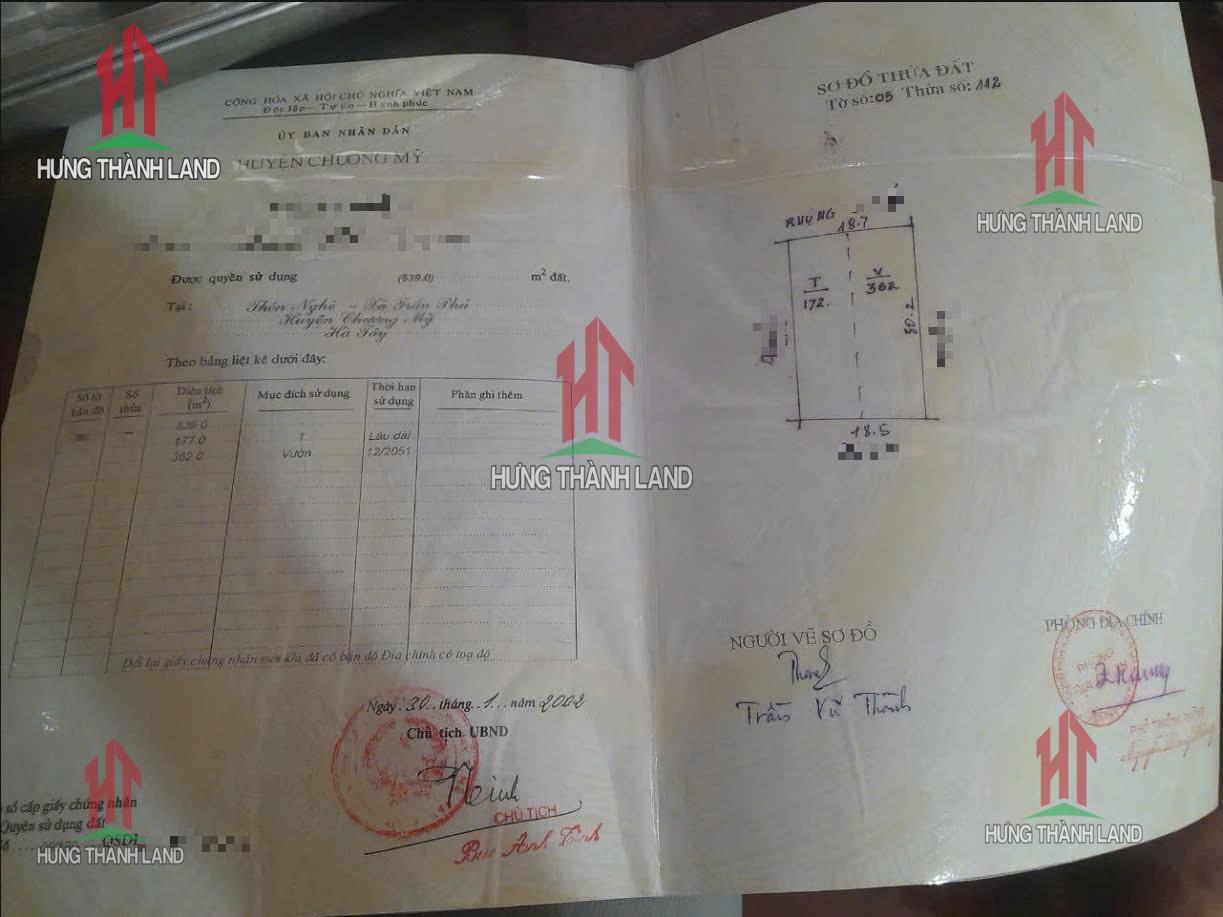 CỘNG HÒA XÃ HỘI CHỦ NGHĨA VIỆT NAM
Độc lập — Tự do — Hạnh phúc
ỦY BAN NHÂN DÂN
HUYỆN CHƯƠNG MỸ
Được quyền sử dụng (539.0) m² đất.
Tại: Thôn Nghè - Xã Trần Phú
Huyện Chương Mỹ
Hà Tây
Theo bảng liệt kê dưới đây:
Số tờ bản đồ Số thửa Diện tích (m²) Mục đích sử dụng Thời hạn sử dụng Phần ghi thêm
539.0
177.0 T Lâu dài
362.0 Vườn 12/2051
Đổi lại giấy chứng nhận mới khi đã có bản đồ Địa chính có toạ độ
Ngày 30 tháng 1 năm 2002
Chủ tịch UBND
CHỦ TỊCH
số cấp giấy chứng nhận
Quyền sử dụng đất
QSDĐ
SƠ ĐỒ THỬA ĐẤT
Tờ số: 05 Thửa số: 112
RUỘNG
18.7
T
172.
V
362
30.2
18.5
NGƯỜI VẼ SƠ ĐỒ
Trần Vũ Thành
PHÒNG ĐỊA CHÍNH
PHÒNG
ĐỊA
PHÓ TRƯỞNG PHÒNG
HƯNG THÀNH LAND
HƯNG THÀNH LAND
HƯNG THÀNH LAND
HƯNG THÀNH LAND
HƯNG THÀNH LAND